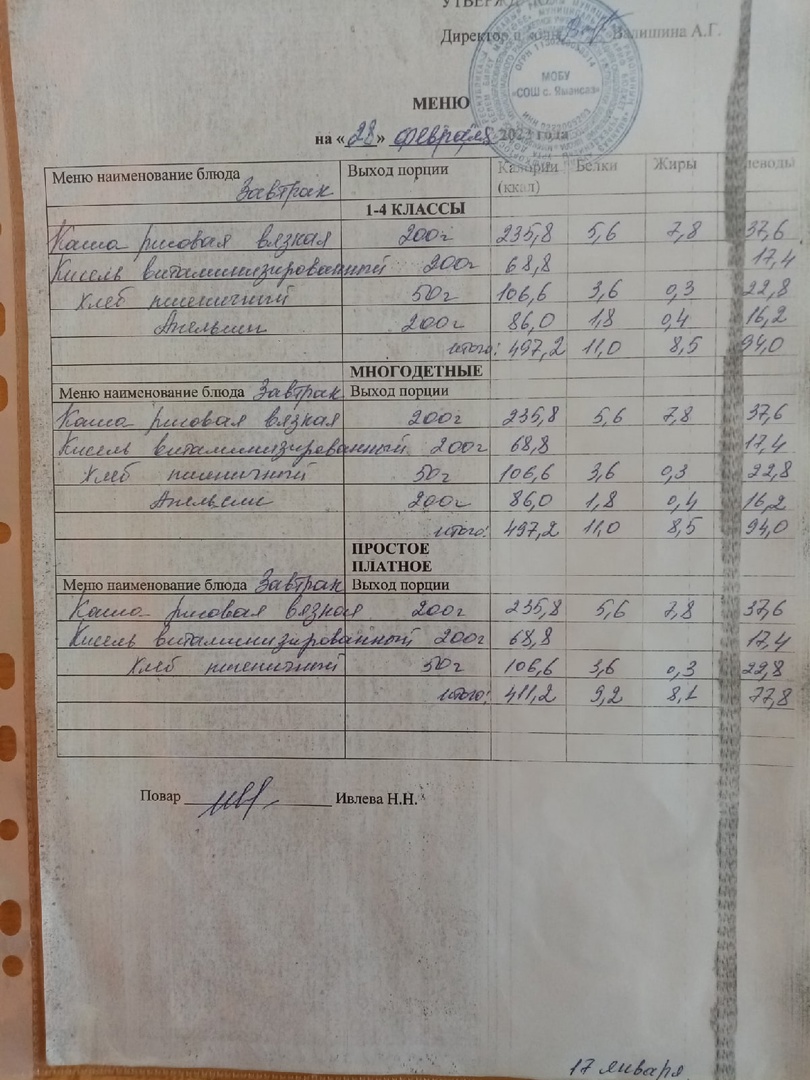 Директор школы Валишина А.Г.
МОБУ
«СОШ с. Ямансаз»
МЕНЮ
на «28» февраля 2023 года
Меню наименование блюда Завтрак Выход порции Калории (ккал) Белки Жиры
1-4 КЛАССЫ
Каша рисовая вязкая 200г 235,8 5,6 7,8 37,6
Кисель витаминизированный 200г 68,8 17,4
Хлеб пшеничный 50г 106,6 3,6 0,3 22,8
Апельсин 200г 86,0 1,8 0,4 16,2
итого: 497,2 11,0 8,5 94,0
МНОГОДЕТНЫЕ
Меню наименование блюда Завтрак Выход порции
Каша рисовая вязкая 200г 235,8 5,6 7,8 37,6
Кисель витаминизированный 200г 68,8 17,4
Хлеб пшеничный 50г 106,6 3,6 0,3 22,8
Апельсин 200г 86,0 1,8 0,4 16,2
итого: 497,2 11,0 8,5 94,0
ПРОСТОЕ
ПЛАТНОЕ
Меню наименование блюда Завтрак Выход порции
Каша рисовая вязкая 200г 235,8 5,6 7,8 37,6
Кисель витаминизированный 200г 68,8 17,4
Хлеб пшеничный 50г 106,6 3,6 0,3 22,8
итого: 411,2 9,2 8,1 77,8
Повар Ивлева Н.Н.
17 января